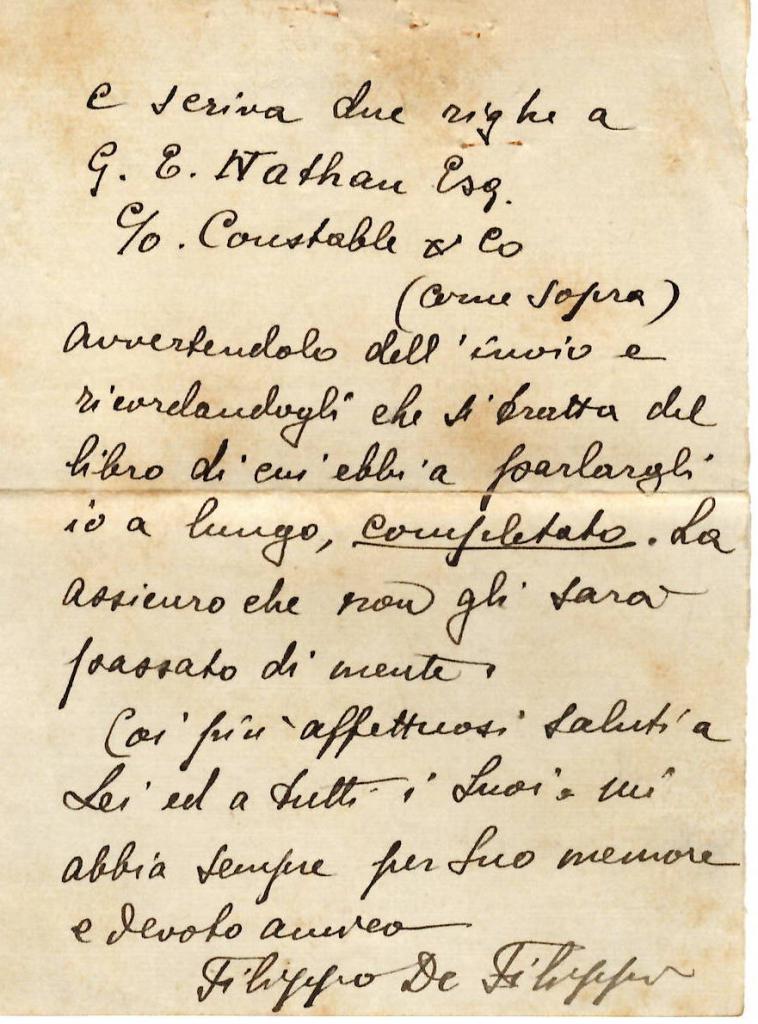 e scriva due righe a
G. E. Nathan Esq.
C/o. Constable & Co
(come sopra)
avvertendolo dell'invio e
ricordandogli che si tratta del
libro di cui ebbi a parlargli
io a lungo, completato. La
assicuro che non gli sarà
passato di mente.
Coi più affettuosi saluti a
Lei ed a tutti i Suoi. mi
abbia sempre per Suo memore
e devoto amico
Filippo De Filippi